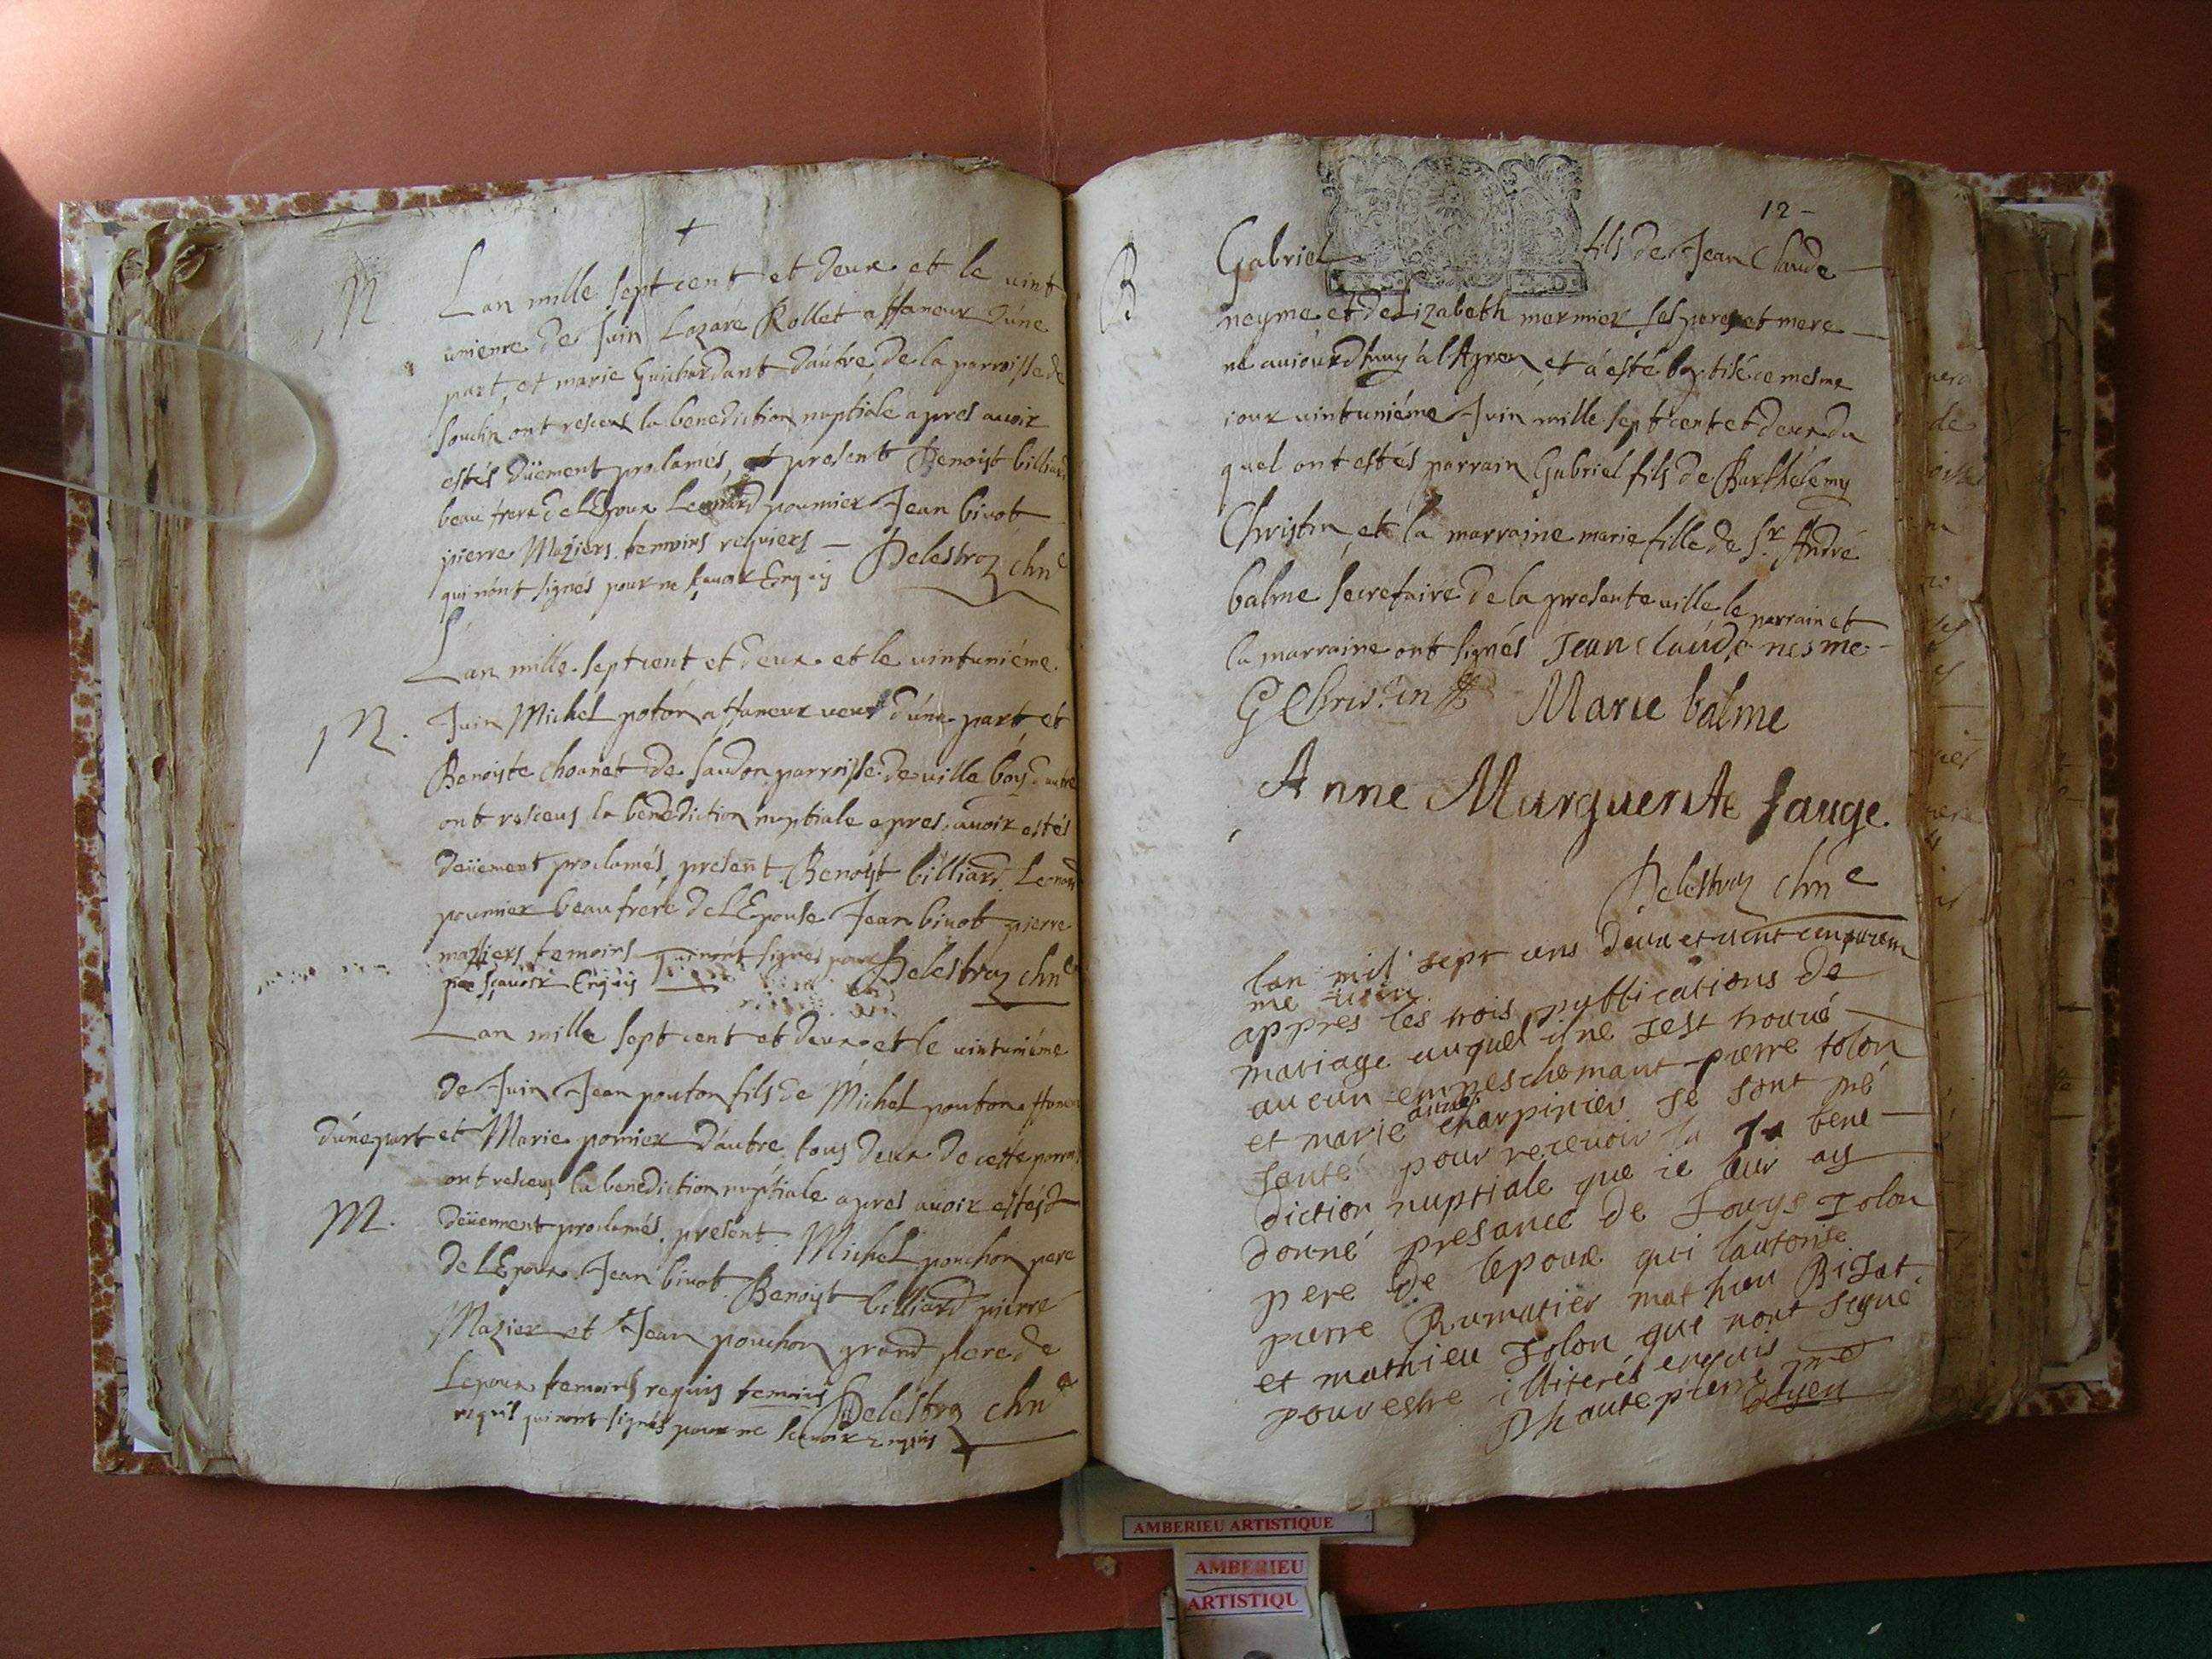 +
M
Lan mille sept cent et deux et le vint
unieme de Juin Lazare Rollet affaneur dúne
part, et marie Guichardant dáutre, de la parroisse de
Souclin ont resceus la benediction nuptiale apres auoir
estés düement proclamés, et present Benoist billiard
beau frere de LEpoux Leonard poumier Jean binot
pierre Maziers temoins requiers — Delestroz chne
qui nónt signés pour ne sçauoir Enquis
Lan mille sept cent et deux et le vintuniéme
M.
Juin Michel poton affaneur veuf dúne part, et
Benoiste choanet de Saudon parroisse de ville boys dautre
ont resceus la benediction nuptiale apres auoir estés
deüement proclamés, present Benoist billiard Leonard
poumier beau frere de LEpouse Jean binot pierre
maziers temoins qui nónt signés pour Delestroz chne
ne sçauoir Enquis
Lan mille sept cent et deux et le vintuniéme
de Juin Jean pouton fils de Michel pouton affaneur
dúne part et Marie pomier dáutre tous deux de cette parroi
ont resceus la benediction nuptiale apres auoir estés
M.
deüement proclamés, present Michel pouchon pere
de LEpoux Jean binot Benoist billiard pierre
Mazier et Jean pouchon grand pere de
Lepoux temoins requis temoins Delestroz chne
requis qui nónt signés pour ne scauoir Enquis
12 -
B
Gabriel fils de Jean Claude
neyme, et de Lizabeth marmier ses pere et mere
ne auiourdhuuy á l'Agnen, et á esté baptisé ce mesme
iour vintuniéme Juin mille sept cent et deux du
quel ont estés parrain Gabriel fils de Barthelemy
Christin, et la marraine marie fille de Sr. André
balme Secretaire de la presente ville le parrain et
la marraine ont signés Jean claude nesme
G Christin Marie balme
Anne Marguerite Sauge.
Delestroz chne
lan mil sept cens deux et vint
me iuin
appres les trois publications de
mariage auquel il ne sest trouué
aucun empeschemant pierre tolon
et marie charpinier se sont pré
senté pour recevoir la bene
diction nuptiale que ie leur ay
donné presance de Louys Tolon
pere de lepoux qui lautorise
pierre Rumatier mathieu Bisat
et mathieu Tolon qui nont signé
pour estre illiterés enquis
Dhautepierre pre
doyen
AMBERIEU ARTISTIQUE
AMBERIEU
ARTISTIQU